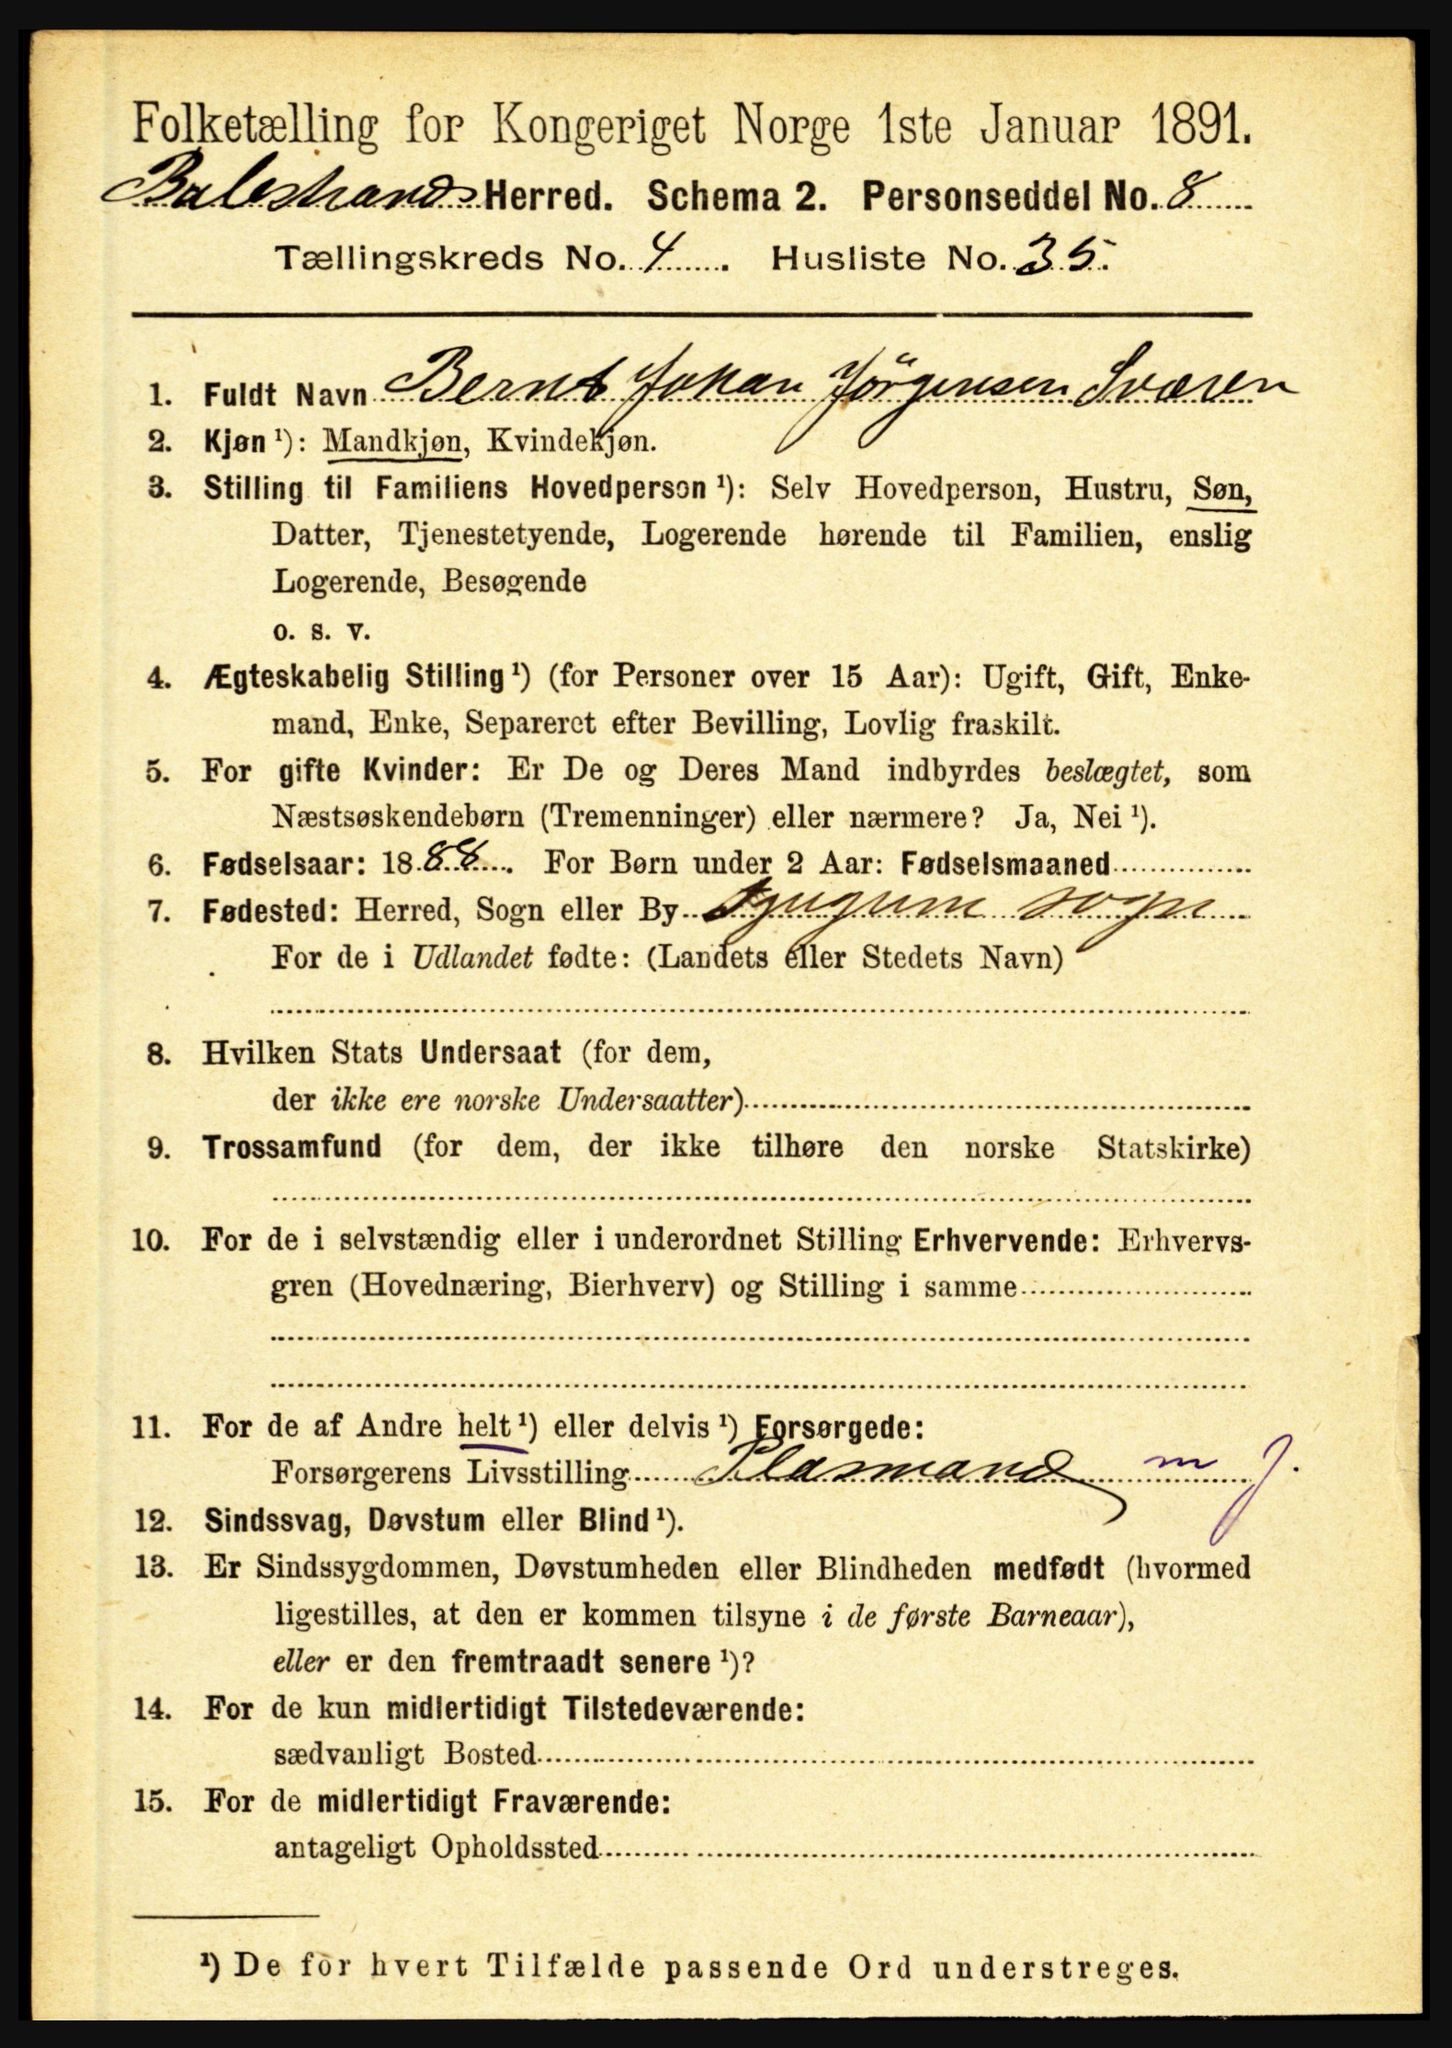 Folketælling for Kongeriget Norge 1ste Januar 1891.
Balestrands Herred. Schema 2. Personseddel No. 8
Tællingskreds No. 4. Husliste No. 35.
1. Fuldt Navn Bernt Johan Jörgensen Sværen
2. Kjøn ¹): Mandkjøn, Kvindekjøn.
3. Stilling til Familiens Hovedperson ¹): Selv Hovedperson, Hustru, Søn,
Datter, Tjenestetyende, Logerende hørende til Familien, enslig
Logerende, Besøgende
o. s. v.
4. Ægteskabelig Stilling ¹) (for Personer over 15 Aar): Ugift, Gift, Enke-
mand, Enke, Separeret efter Bevilling, Lovlig fraskilt.
5. For gifte Kvinder: Er De og Deres Mand indbyrdes beslægtet, som
Næstsøskendebørn (Tremenninger) eller nærmere? Ja, Nei ¹).
6. Fødselsaar: 1888. For Børn under 2 Aar: Fødselsmaaned
7. Fødested: Herred, Sogn eller By Tjugum sogn
For de i Udlandet fødte: (Landets eller Stedets Navn)
8. Hvilken Stats Undersaat (for dem,
der ikke ere norske Undersaatter)
9. Trossamfund (for dem, der ikke tilhøre den norske Statskirke)
10. For de i selvstændig eller i underordnet Stilling Erhvervende: Erhvervs-
gren (Hovednæring, Bierhverv) og Stilling i samme
11. For de af Andre helt ¹) eller delvis ¹) Forsørgede:
Forsørgerens Livsstilling Plasmand m J.
12. Sindssvag, Døvstum eller Blind ¹).
13. Er Sindssygdommen, Døvstumheden eller Blindheden medfødt (hvormed
ligestilles, at den er kommen tilsyne i de første Barneaar),
eller er den fremtraadt senere ¹)?
14. For de kun midlertidigt Tilstedeværende:
sædvanligt Bosted
15. For de midlertidigt Fraværende:
antageligt Opholdssted
¹) De for hvert Tilfælde passende Ord understreges.